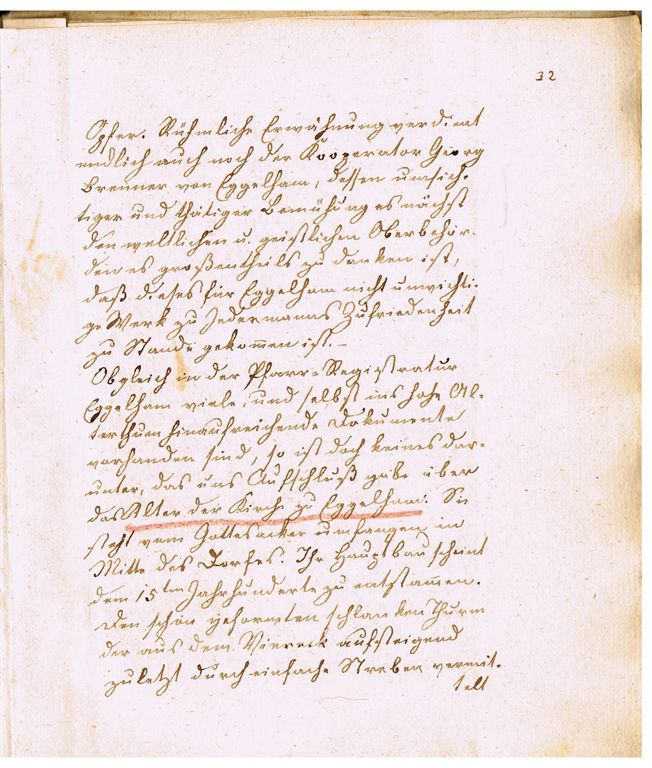 32
Opfer. Rühmliche Erwähnung verdient
endlich auch noch der Kooperator Georg
Brenner von Eggelham, dessen umsich-
tiger und thätiger Bemühung es nächst
den weltlichen u. geistlichen Oberbehör-
den es großentheils zu danken ist,
daß dieses für Eggelham nicht unwichti-
ge Werk zu Jedermanns Zufriedenheit
zu Stande gekommen ist. –
Obgleich in der Pfarr-Registratur
Eggelham viele, und selbst ins hohe Al-
terthum hinaufreichende Dokumente
vorhanden sind, so ist doch keines dar-
unter, das uns Aufschluß gäbe über
das Alter der Kirche zu Eggelham. Sie
steht vom Gottesacker umfangen in
Mitte des Dorfes. Ihr Hauptbau scheint
dem 15ten Jahrhunderte zu entstammen.
Den schön geformten schlanken Thurm
der aus dem Viereck aufsteigend
zuletzt durch einfache Streben vermit-
telt